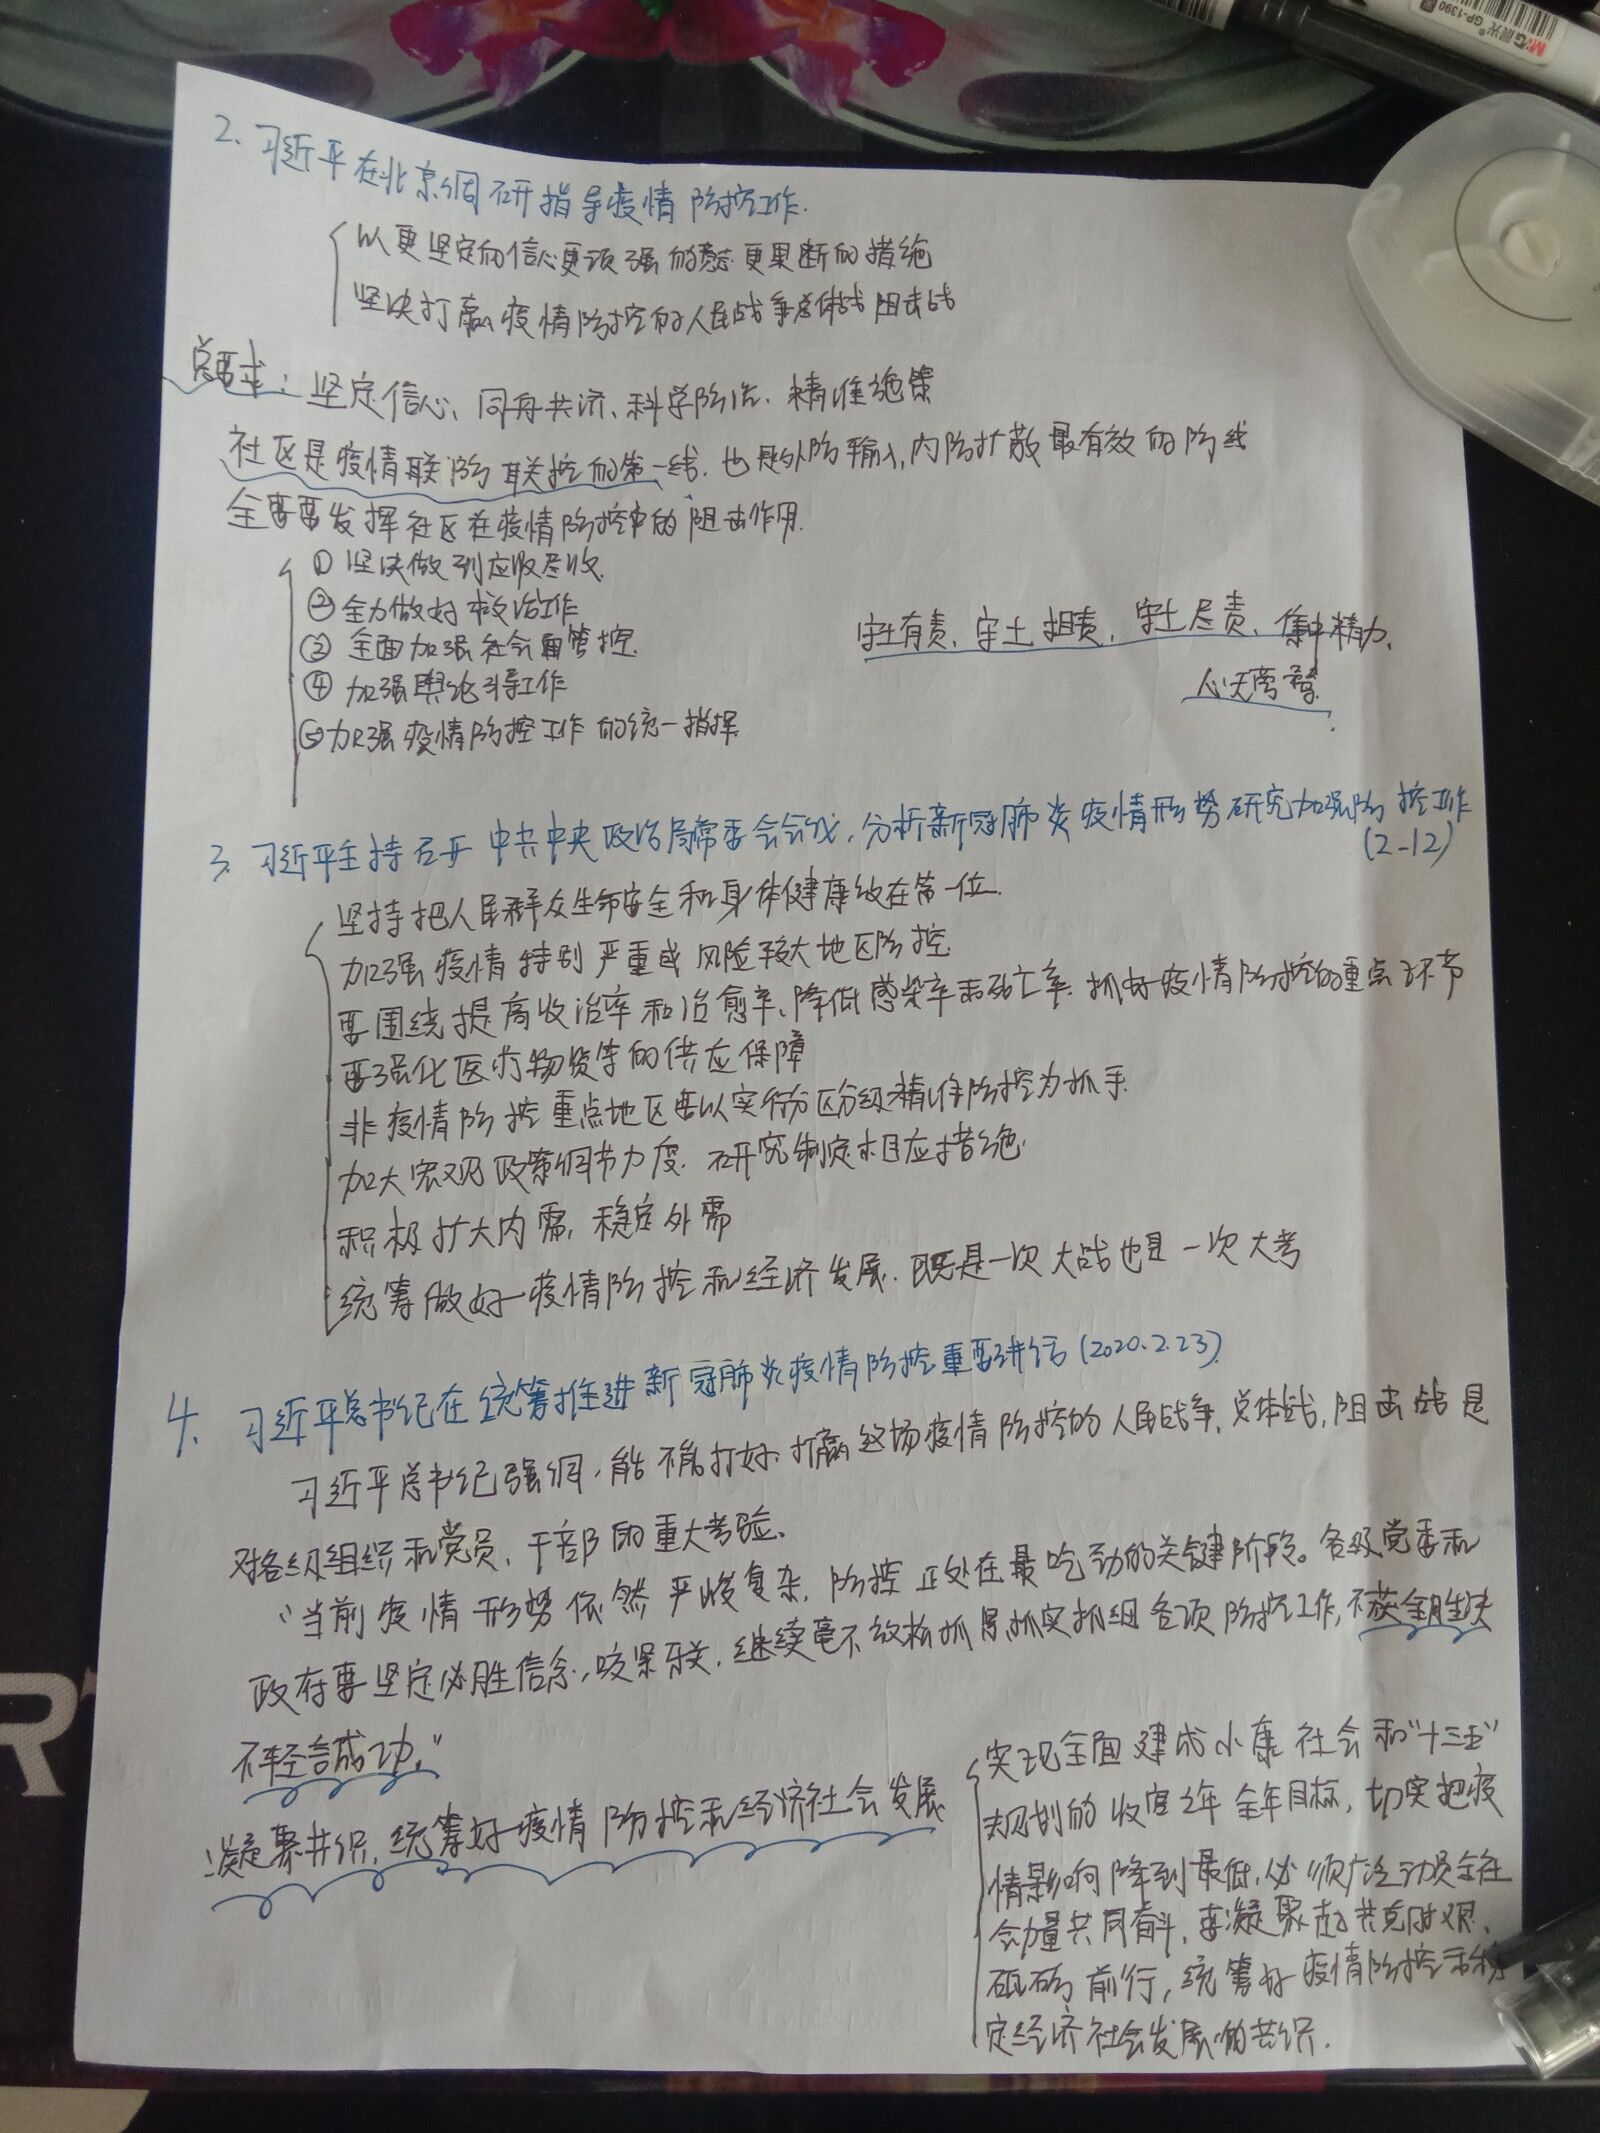 M&G晨光 GP-1390
2. 习近平在北京调研指导疫情防控工作.
以更坚定的信心更顽强的意志更果断的措施
坚决打赢疫情防控的人民战争总体战阻击战
总要求: 坚定信心、同舟共济、科学防治、精准施策
社区是疫情联防联控的第一线. 也是外防输入, 内防扩散最有效的防线
全要要发挥社区在疫情防控中的阻击作用.
① 坚决做到应收尽收.
② 全力做好救治工作
③ 全面加强社会面管控.
④ 加强舆论引导工作
⑤ 加强疫情防控工作的统一指挥.
守土有责、守土担责, 守土尽责、集中精力.
心无旁骛.
3. 习近平主持召开中共中央政治局常委会会议, 分析新冠肺炎疫情形势研究加强防控工作
(2-12)
坚持把人民群众生命安全和身体健康放在第一位.
加强疫情特别严重或风险较大地区防控.
要围绕提高收治率和治愈率、降低感染率和死亡率. 抓好疫情防控的重点环节
要强化医疗物资等的供应保障
非疫情防控重点地区要以实行分区分级精准防控为抓手.
加大宏观政策调节力度. 研究制定相应措施.
积极扩大内需, 稳定外需
统筹做好疫情防控和经济发展. 既是一次大战也是一次大考
4、习近平总书记在统筹推进新冠肺炎疫情防控重要讲话(2020.2.23).
习近平总书记强调, 能不能打好.打赢这场疫情防控的人民战争、总体战, 阻击战是
对各级组织和党员、干部的重大考验、
"当前疫情形势依然严峻复杂. 防控正处在最吃劲的关键阶段。各级党委和
政府要坚定必胜信念, 咬紧牙关, 继续毫不放松抓紧抓实抓细各项防控工作, 不获全胜决
不轻言成功."
凝聚共识, 统筹好疫情防控和经济社会发展
实现全面建成小康社会和"十三五"
规划的收官之年全年目标, 切实把疫
情影响降到最低, 必须广泛动员全社
会力量共同奋斗, 要凝聚起共克时艰、
砥砺前行, 统筹好疫情防控和稳
定经济社会发展的共识.